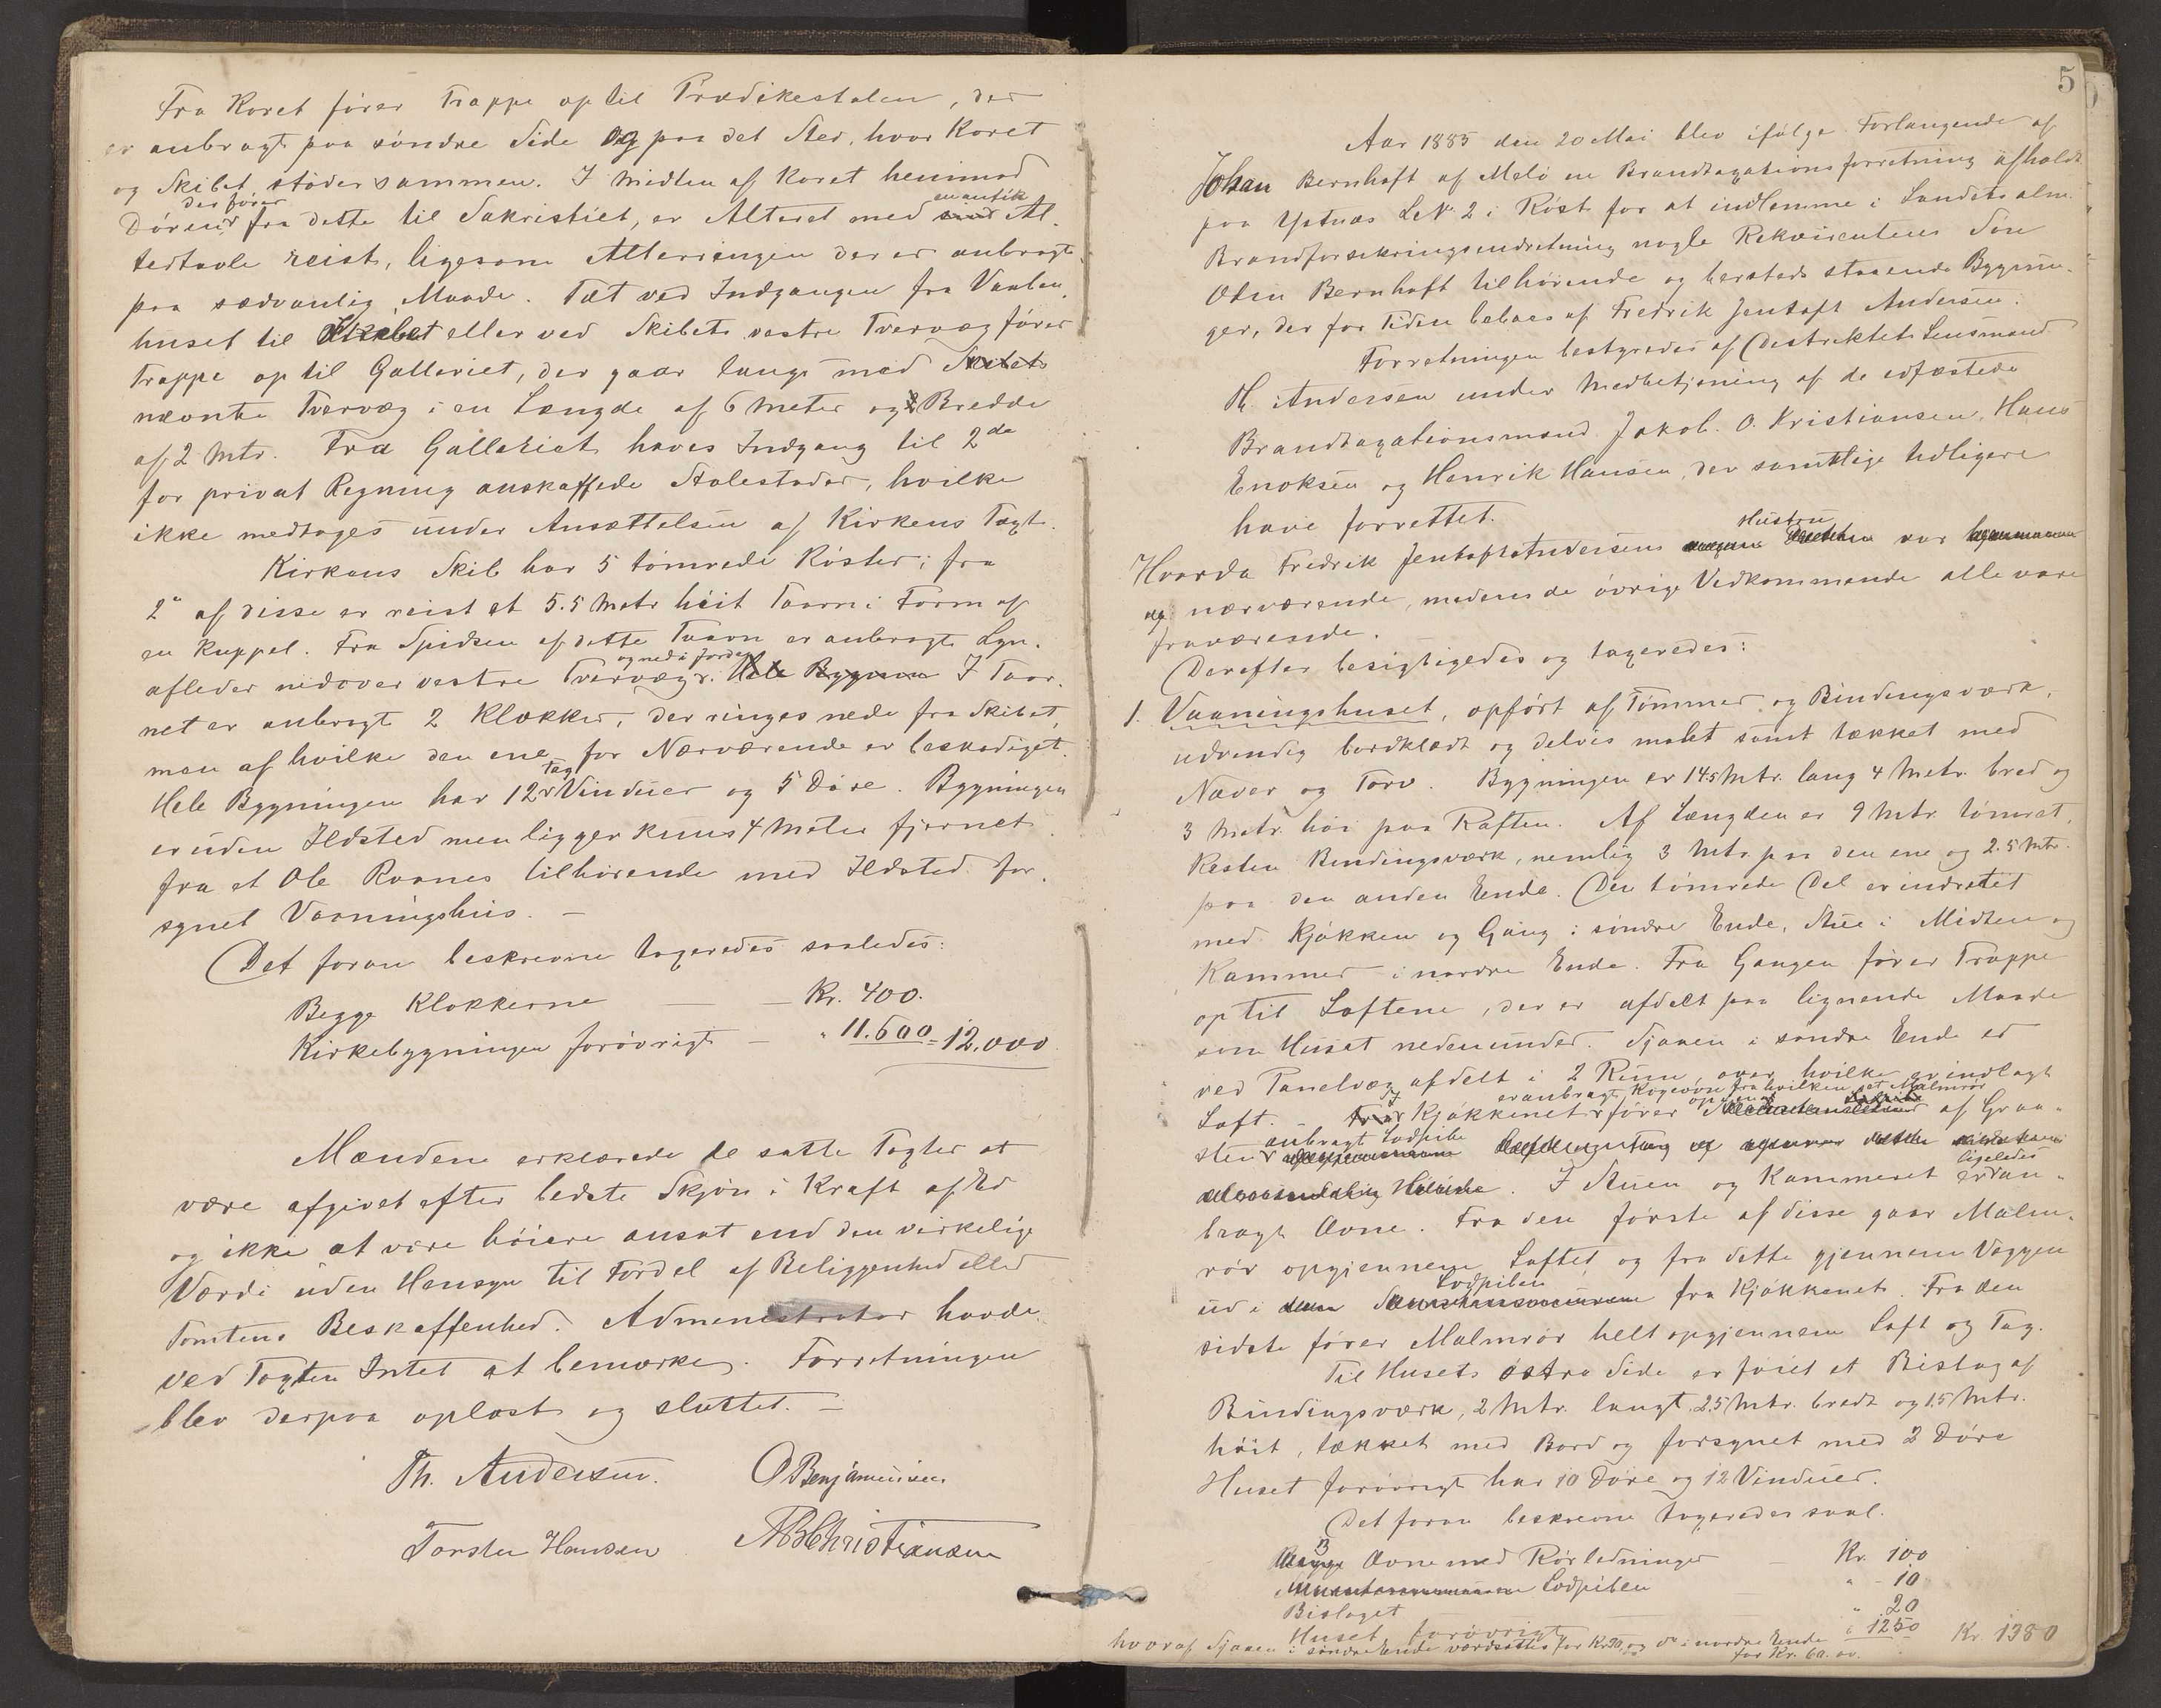 Fra Koret fører Trappe op til Prædikestolen, der
er anbragt paa søndre Side og paa det Sted, hvor Koret
og Skibet støder sammen. I Midten af Koret henimod
der fører en antik
Døren fra dette til Sakristiet, er Alteret med Al-
tertavle reist, ligesom Alterringen der er anbragt
paa sædvanlig Maade. Tæt ved Indgangen fra Vaaben-
huset til Skibet eller ved Skibets vestre Tvervæg fører
Trappe op til Galleriet, der gaar langs med Skibets
nævnte Tvervæg i en Længde af 6 Meter og Bredde
af 2 Mtr. Fra Galleriet haves Indgang til 2de
for privat Regning anskaffede Stolestader, hvilke
ikke medtages under Ansættelsen af Kirkens Taxt.
Kirkens Skib har 5 tømrede Røster; fra
2" af disse er reist et 5.5 Metr høit Taarn i Form af
en Kuppel. Fra Spidsen af dette Taarn er anbragt Lyn-
og ned i Jorden
afleder nedover vestre Tvervæg. Hele Bygnin I Taar-
net er anbragt 2 Klokker, der ringes nede fra Skibet,
men af hvilke den ene for Nærværende er beskadiget.
Fag
Hele Bygningen har 12 Vinduer og 5 Døre. Bygningen
er uden Ildsted men ligger kuns 4 Meter fjernet
fra et Ole Roanes tilhørende med Ildsted for-
synet Vaaningshus. –
Det foran beskrevne taxeredes saaledes:
Begge Klokkerne — — Kr. 400.
Kirkebygningen forøvrigt — " 11.600 = 12.000
Mændene erklærede de satte Taxter at
være afgivet efter bedste Skjøn i Kraft af Ed
og ikke at være høiere ansat end den virkelige
Værdi uden Hensyn til Fordel af Beliggenhed eller
Tomtens Beskaffenhed. Admenestrator havde
ved Taxten Intet at bemærke. Forretningen
blev derpaa oplæst og sluttet. –
Th. Andersen. O Benjaminsen
Torsten Hansen Christiansen
5
Aar 1885 den 20 Mai blev ifølge Forlangende af
Johan Bernhoft af Melø en Brandtaxationsforretning afholdt
paa Ystnæs L.N. 2 i Røst for at indlemme i Landets alm.
Brandforsikringsindretning nogle Rekvirentens Søn
Odin Bernhoft tilhørende og hersteds staaende Bygnin-
ger, der for Tiden beboes af Fredrik Jentoft Andersen.
Forretningen bestyredes af Destriktets Lensmand
Th. Andersen under Medbetjening af de edfæstede
Brandtaxationsmænd Jakob O. Kristiansen, Hans
Enoksen og Henrik Hansen, der samtlige tidligere
have forrettet.
Hustru
Hvorda Fredrik Jentoft Andersens var
nærværende, medens de øvrige Vedkommende alle vare
fraværende.
Derefter besigtigedes og taxeredes:
1. Vaaningshuset, opført af Tømmer og Bindingsværk,
udvendig bordklædt og delvis malet samt tækket med
Næver og Torv. Bygningen er 14.5 Mtr. lang 4 Metr. bred og
3 Metr. høi paa Raften. Af Længden er 9 Mtr. tømret,
Resten Bindingsværk, nemlig 3 Mtr. paa den ene og 2.5 Mtr.
paa den anden Ende. Den tømrede Del er indrettet
med Kjøkken og Gang i søndre Ende, Stue i Midten og
Kammer i nordre Ende. Fra Gangen fører Trappe
op til Loftene, der er afdelt paa lignende Maade
som Huset nedenunder. Sjaaen i søndre Ende er
ved Panelvæg afdelt i 2 Rum, over hvilke er indlagt
er anbragt Kogeovn fra hvilken et Malmrør
Loft. – I Kjøkkenet fører op af Graa-
anbragt Lodpibe
sten
ligeledes
. I Stuen og Kammeret er an-
bragt Ovne. Fra den første af disse gaar Malm-
rør opgjennem Loftet og fra dette gjennem Væggen
Lodpiben
ud i fra Kjøkkenet. Fra den
sidste fører Malmrør helt opgjennem Loft og Tag.
Til Husets østre Side er føiet et Bislag af
Bindingsværk, 2 Mtr. langt 2.5 Mtr. bredt og 1.5 Mtr.
høit, tækket med Bord og forsynet med 2 Døre
Huset forøvrigt har 10 Døre og 12 Vinduer.
Det foran beskrevne taxeredes saal.
Ovne med Rørledninger — Kr. 100
Lodpiben " 10
Bislaget " 20
Huset forøvrigt " 1250 Kr 1380
hvoraf Sjaaen i søndre Ende værdsættes for Kr 30, og do i nordre Ende
for Kr. 60.00.